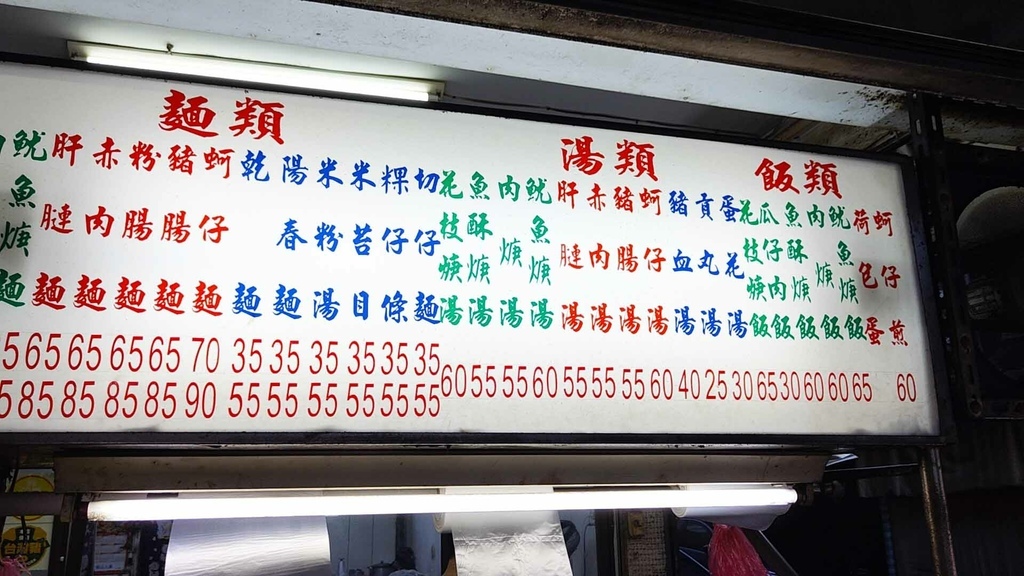 麵類
魷魚焿麵
肝腱麵
赤肉麵
粉腸麵
豬腸麵
蚵仔麵
乾麵
陽春麵
米粉湯
米苔目
粿仔條
切仔麵
5 65 65 65 65 70 35 35 35 35 35 35
5 85 85 85 85 90 55 55 55 55 55 55
湯類
花枝焿湯
魚酥焿湯
肉焿湯
魷魚焿湯
肝腱湯
赤肉湯
豬腸湯
蚵仔湯
豬血湯
貢丸湯
蛋花湯
60 55 55 60 55 55 55 60 40 25 30
飯類
花枝焿飯
瓜仔肉飯
魚酥焿飯
肉焿飯
魷魚焿飯
荷包蛋
蚵仔煎
65 30 60 60 65 60